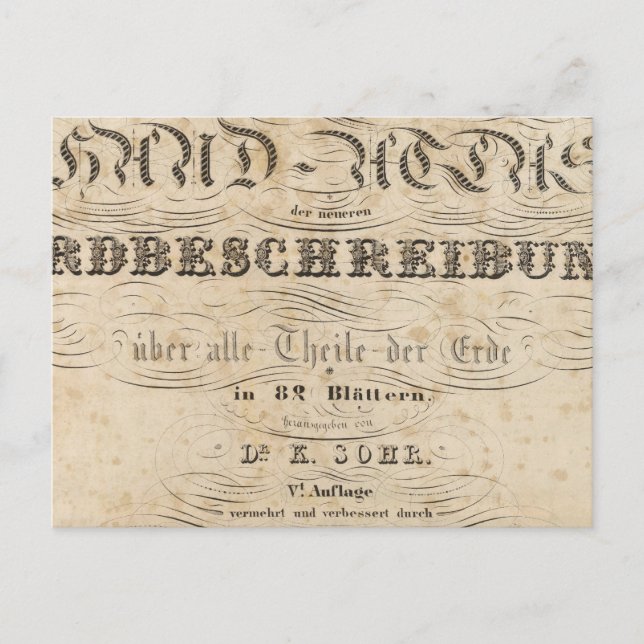 HAND-ATLAS
der neueren
RDBESCHREIBUN
über alle Theile der Erde
in 82 Blättern.
herausgegeben von
DR K. SOHR.
Vt. Auflage
vermehrt und verbessert durch